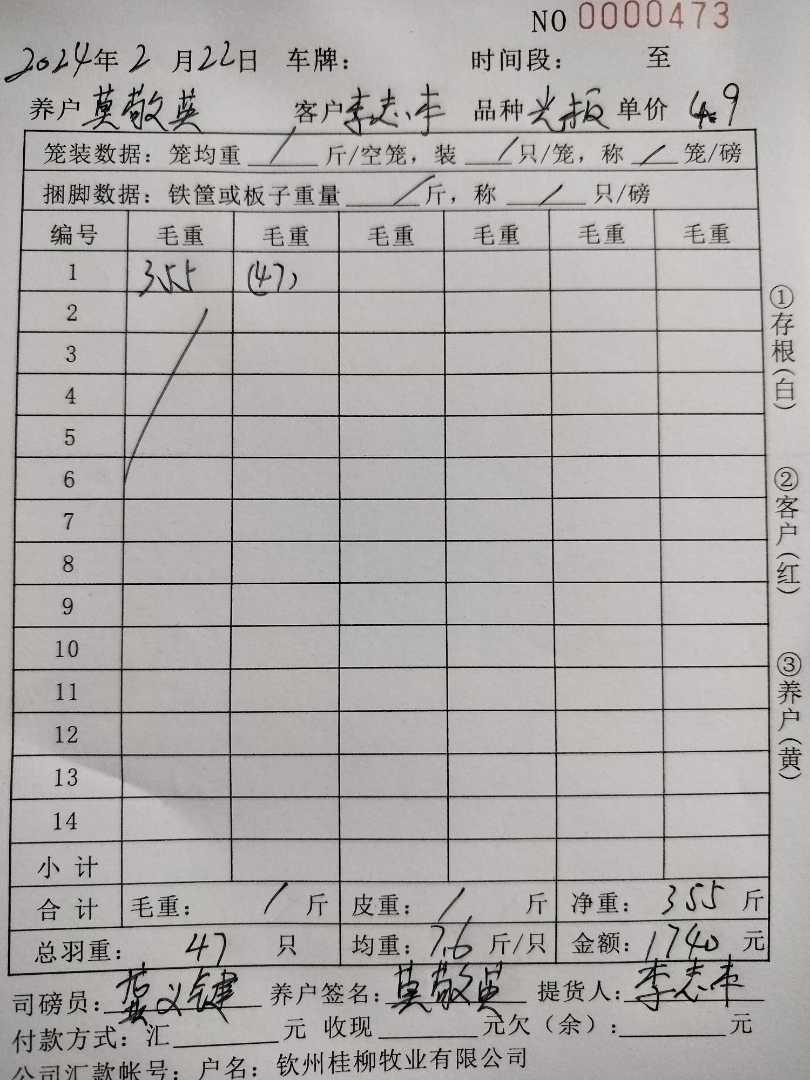 NO 0000473
2024年2月22日 车牌: 时间段: 至
养户 莫敬英 客户 李志丰 品种 光扳 单价 4.9
笼装数据: 笼均重 / 斤/空笼, 装 / 只/笼, 称 / 笼/磅
捆脚数据: 铁筐或板子重量 / 斤, 称 / 只/磅
编号 毛重 毛重 毛重 毛重 毛重 毛重
1 355 (47)
2
3
4
5
6
7
8
9
10
11
12
13
14
小计
合计 毛重: / 斤 皮重: / 斤 净重: 355 斤
总羽重: 47 只 均重: 7.6 斤/只 金额: 1740 元
司磅员: 义键 养户签名: 莫敬英 提货人: 李志丰
付款方式: 汇 元 收现 元欠(余): 元
公司汇款帐号: 户名: 钦州桂柳牧业有限公司
①存根(白)
②客户(红)
③养户(黄)